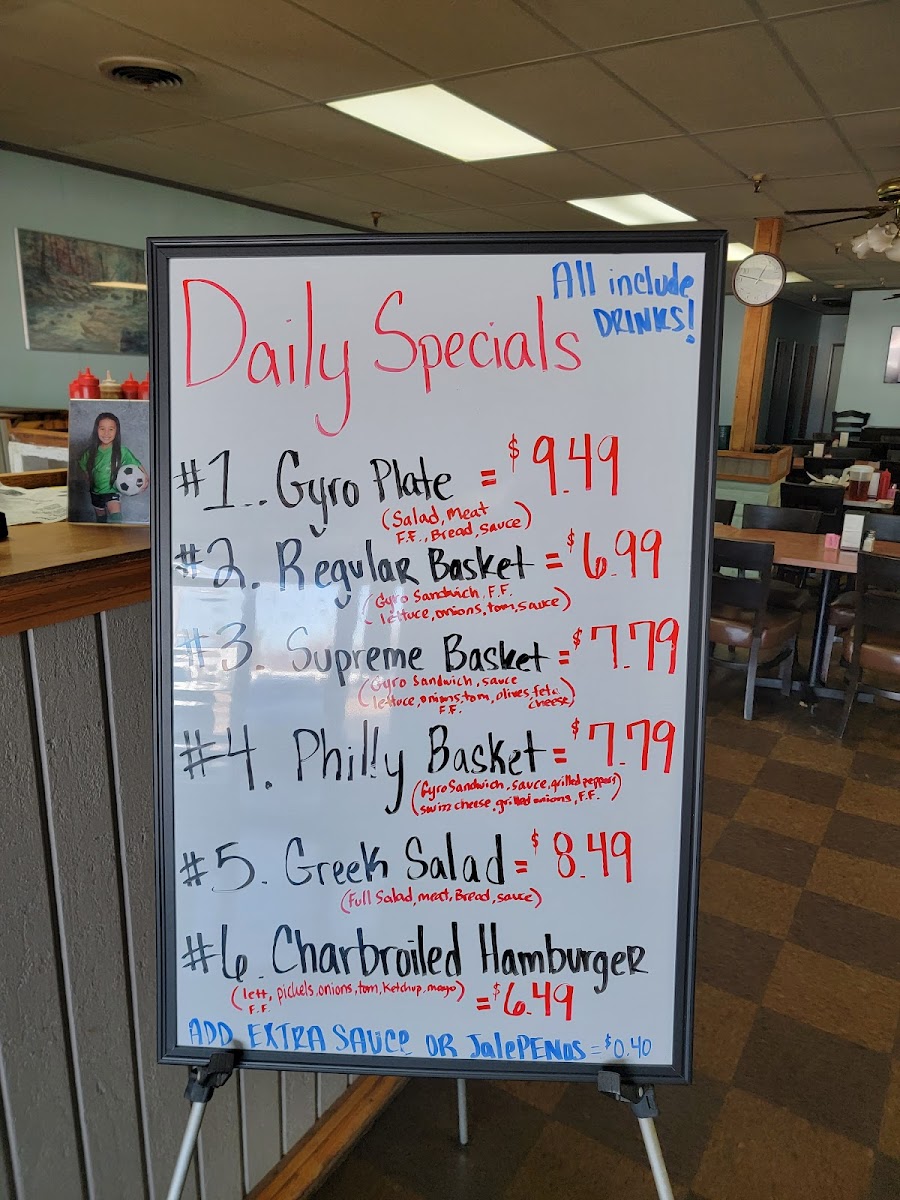 Daily Specials
All include
DRINKS!
#1.. Gyro Plate = $9.49
(Salad, meat
F.F., Bread, sauce)
#2. Regular Basket = $6.99
(Gyro Sandwich, F.F.
lettuce, onions, tom, sauce)
#3. Supreme Basket = $7.79
(Gyro Sandwich, sauce
lettuce, onions, tom, olives, feta
F.F. cheese)
#4. Philly Basket = $7.79
(Gyro Sandwich, sauce, grilled peppers
swiss cheese, grilled onions, F.F.)
#5. Greek Salad = $8.49
(Full Salad, meat, Bread, sauce)
#6. Charbroiled Hamburger
(lett, pickels, onions, tom, ketchup, mayo)
F.F. = $6.49
ADD EXTRA SAUCE OR JalePENOS = $0.40